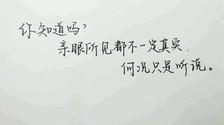 你知道吗？
亲眼所见都不一定真实，
何况只是听说。